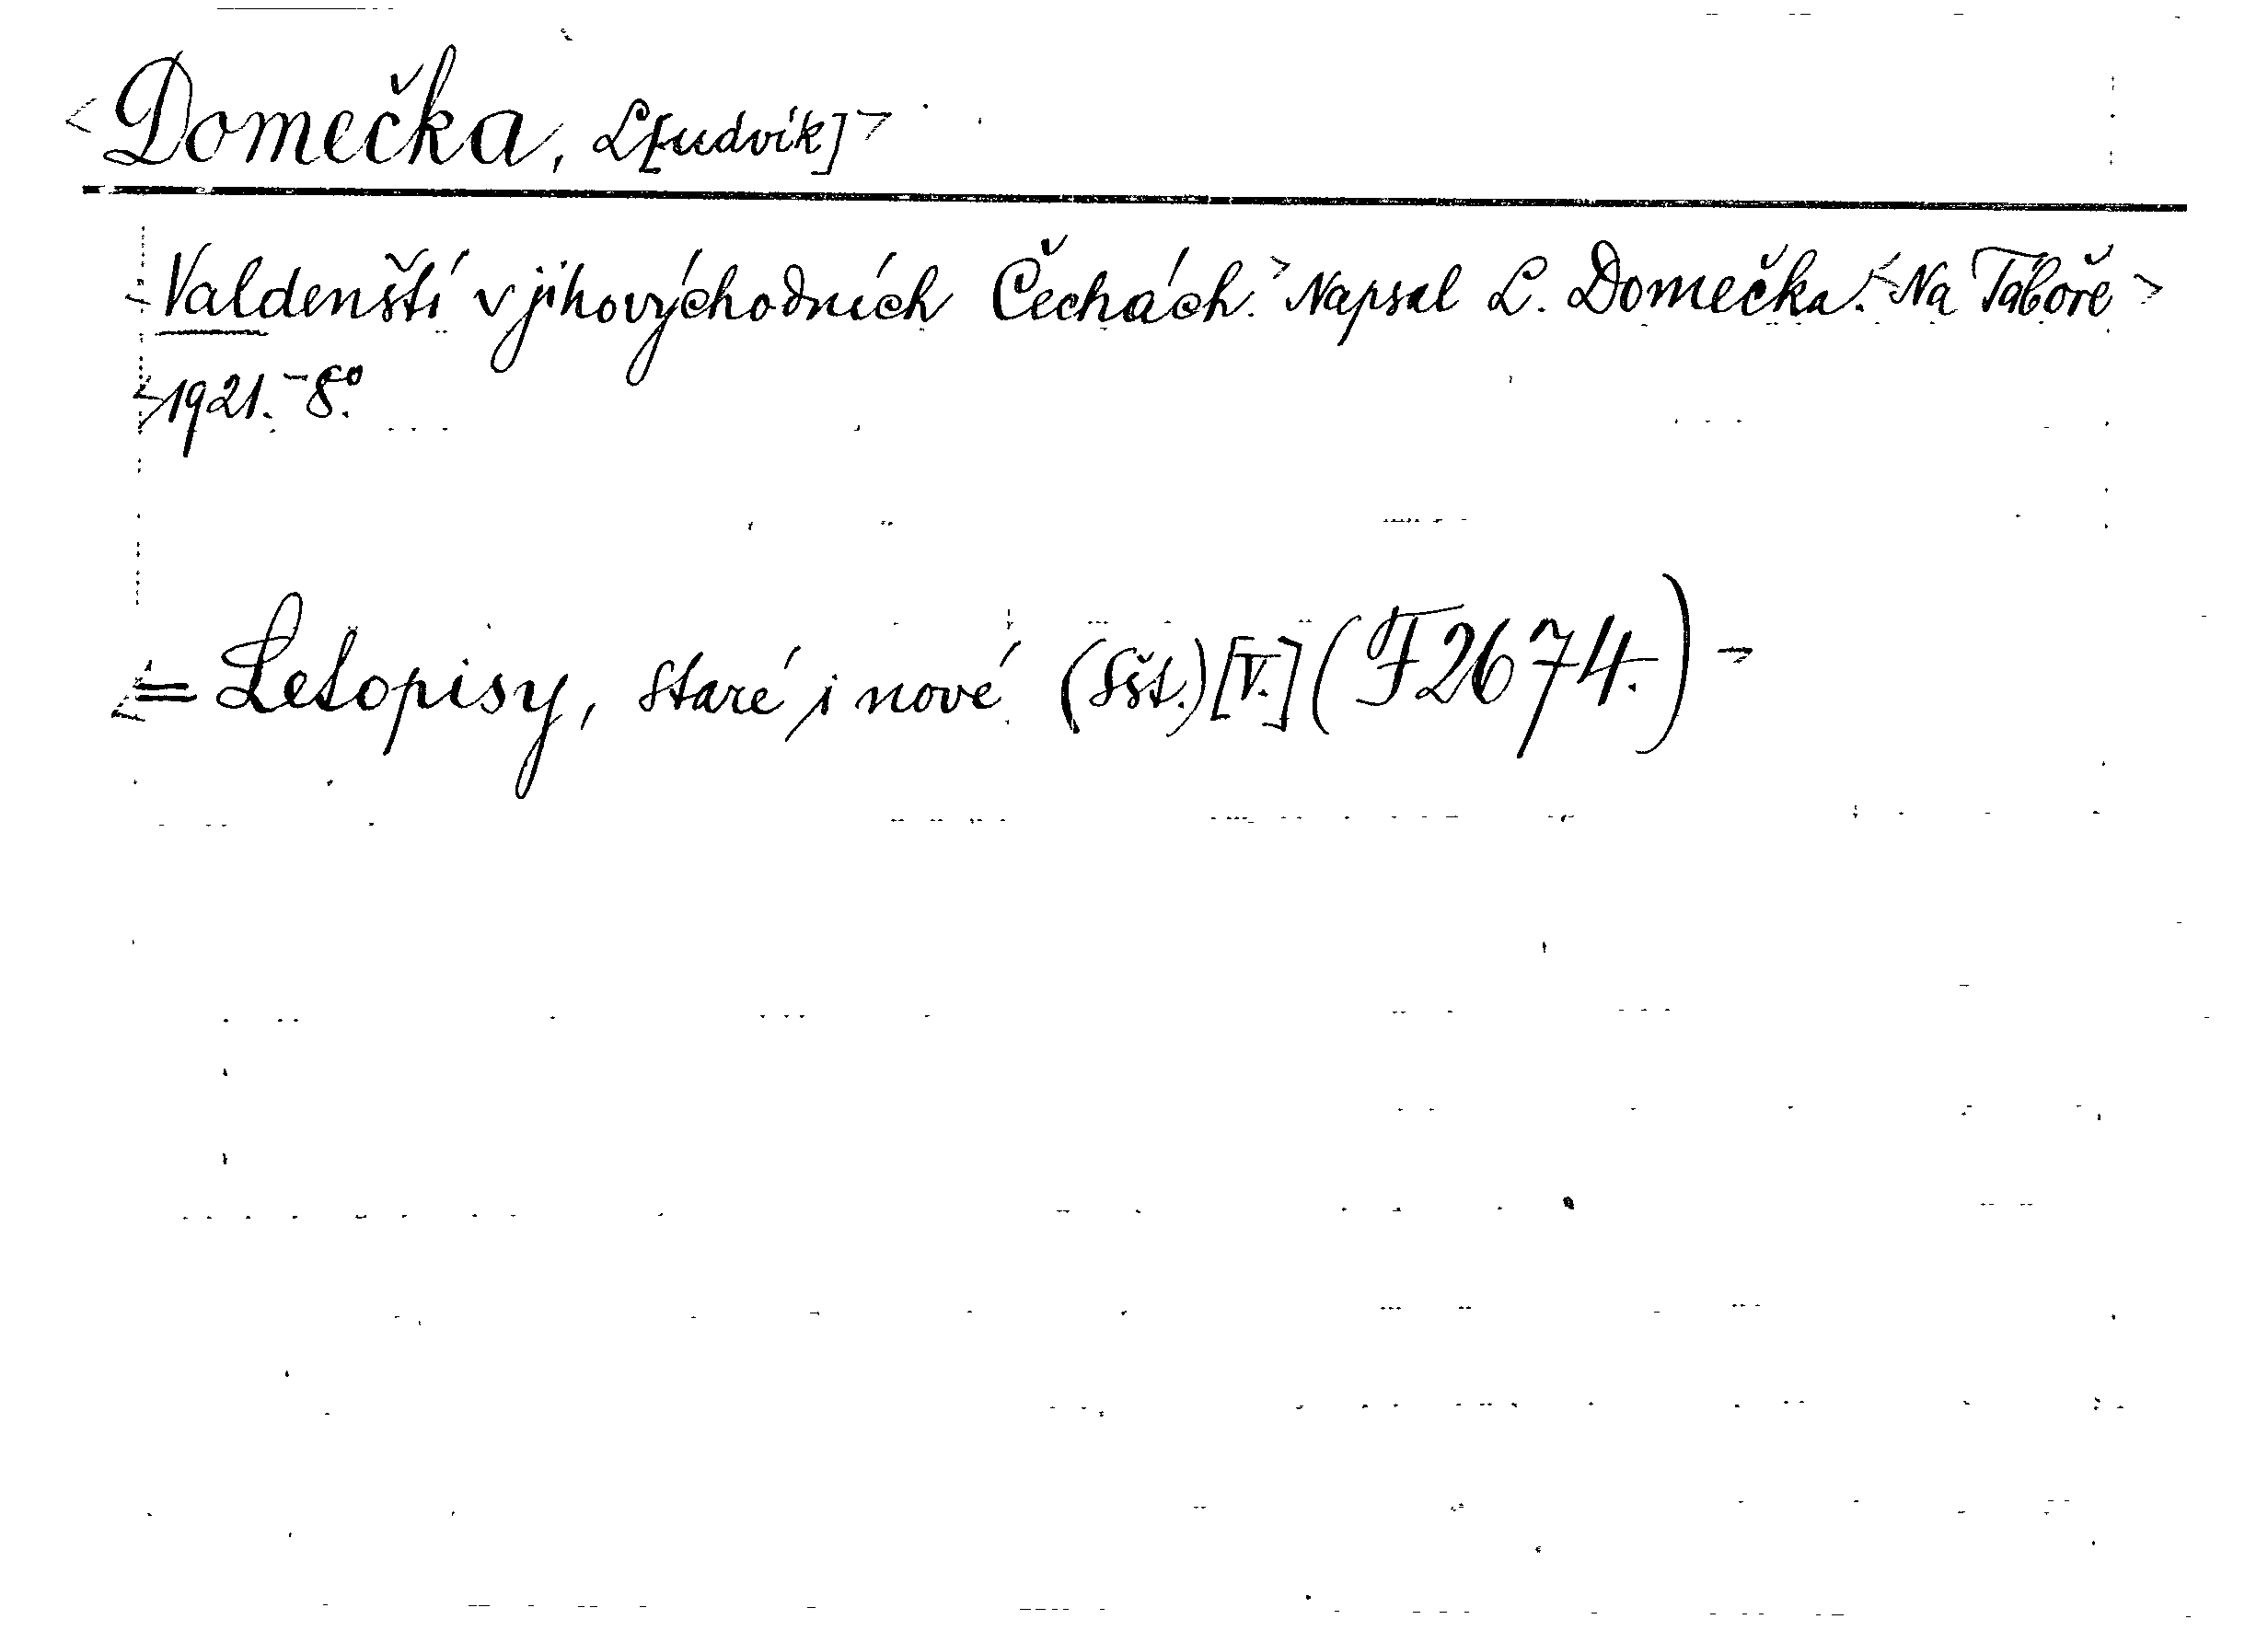 <Domečka, L[udvík]>
<Valdenští v jihovýchodních Čechách.> Napsal L. Domečka. <Na Táboře>
<1921. - 8.°
<= Letopisy, staré i nové (Sšt.) [V.] (F 2674.) >